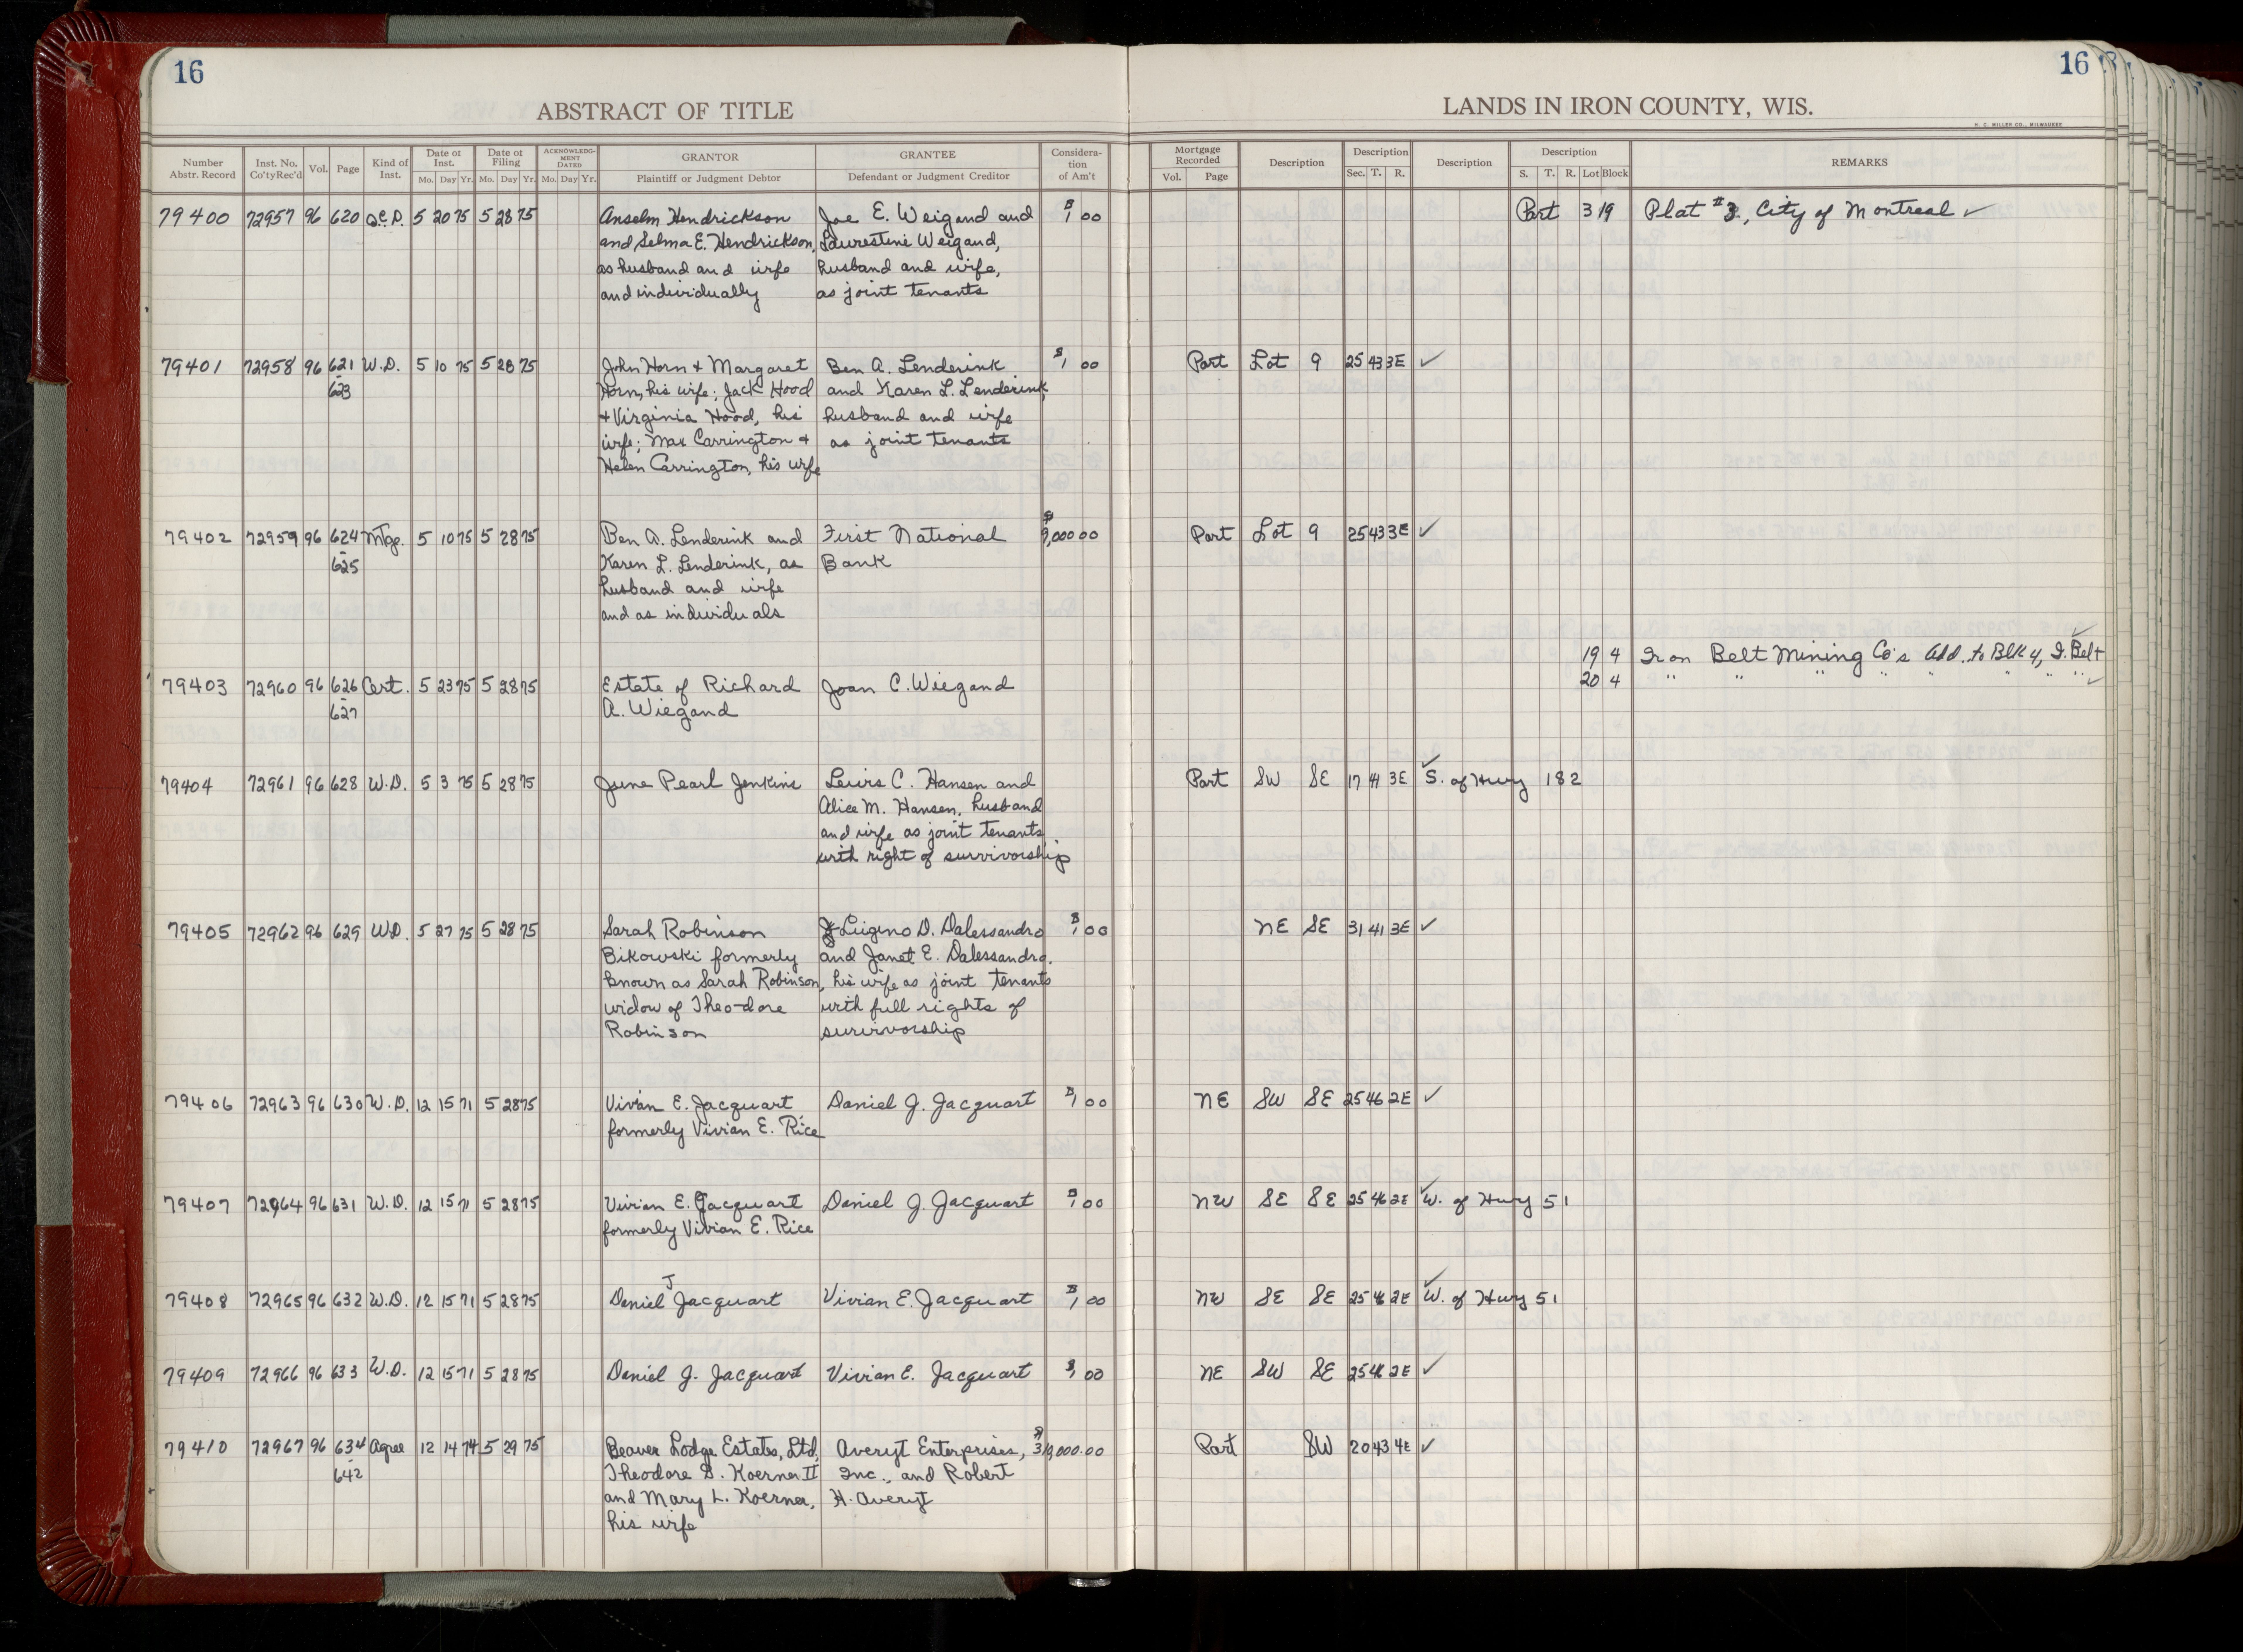 16
16
ABSTRACT OF TITLE
LANDS IN IRON COUNTY, WIS.
H. C. MILLER CO., MILWAUKEE
Number Abstr. Record | Inst. No. Co'ty Rec'd | Vol. | Page | Kind of Inst. | Date of Inst. Mo. Day Yr. | Date of Filing Mo. Day Yr. | ACKNOWLEDGMENT DATED Mo. Day Yr. | GRANTOR Plaintiff or Judgment Debtor | GRANTEE Defendant or Judgment Creditor | Consideration of Am't | Mortgage Recorded Vol. Page | Description | Description Sec. T. R. | Description | Description S. T. R. Lot Block | REMARKS
79400 72957 96 620 Q.C.D. 5 20 75 5 28 75 Anselm Hendrickson Joe E. Weigand and $1 00 Part 3 19 Plat #2, City of Montreal ✓
and Selma E. Hendrickson, Laurestine Weigand,
as husband and wife husband and wife,
and individually as joint tenants
79401 72958 96 621 W.D. 5 10 75 5 28 75 John Horn + Margaret Ben A. Lenderink $1 00 Part Lot 9 25 43 3E ✓
- 623 Horn, his wife; Jack Hood and Karen L. Lenderink
+ Virginia Hood, his husband and wife
wife; Max Carrington + as joint tenants
Helen Carrington, his wife
79402 72959 96 624 Mtge. 5 10 75 5 28 75 Ben A. Lenderink and First National $9,000 00 Part Lot 9 25 43 3E ✓
- 625 Karen L. Lenderink, as Bank
husband and wife
and as individuals
19 4 Iron Belt Mining Co's Add. to Blk 4, I. Belt ✓
79403 72960 96 626 Cert. 5 23 75 5 28 75 Estate of Richard Joan C. Wiegand 20 4 " " " " " " " " ✓
- 627 A. Wiegand
79404 72961 96 628 W.D. 5 3 75 5 28 75 June Pearl Jenkins Lewis C. Hansen and Part SW SE 17 41 3E ✓ S. of Hwy 182
Alice M. Hansen, husband
and wife as joint tenants
with right of survivorship
79405 72962 96 629 W.D. 5 27 75 5 28 75 Sarah Robinson Luigino D. Dalessandro $1 00 NE SE 31 41 3E ✓
Bikowski formerly and Janet E. Dalessandro.
known as Sarah Robinson, his wife as joint tenants
widow of Theodore with full rights of
Robinson survivorship
79406 72963 96 630 W.D. 12 15 71 5 28 75 Vivian E. Jacquart, Daniel J. Jacquart $1 00 NE SW SE 25 46 2E ✓
formerly Vivian E. Rice
79407 72964 96 631 W.D. 12 15 71 5 28 75 Vivian E. Jacquart Daniel J. Jacquart $1 00 NW SE SE 25 46 2E ✓ W. of Hwy 51
formerly Vivian E. Rice
79408 72965 96 632 W.D. 12 15 71 5 28 75 Daniel J Jacquart Vivian E. Jacquart $1 00 NW SE SE 25 46 2E ✓ W. of Hwy 51
79409 72966 96 633 W.D. 12 15 71 5 28 75 Daniel J. Jacquart Vivian E. Jacquart $1 00 NE SW SE 25 46 2E ✓
79410 72967 96 634 Agree 12 14 74 5 29 75 Beaver Lodge Estates, Ltd, Averyt Enterprises, Part SW 20 43 4E ✓
- 642 Theodore G. Koerner II Inc., and Robert
and Mary L. Koerner, H. Averyt
his wife